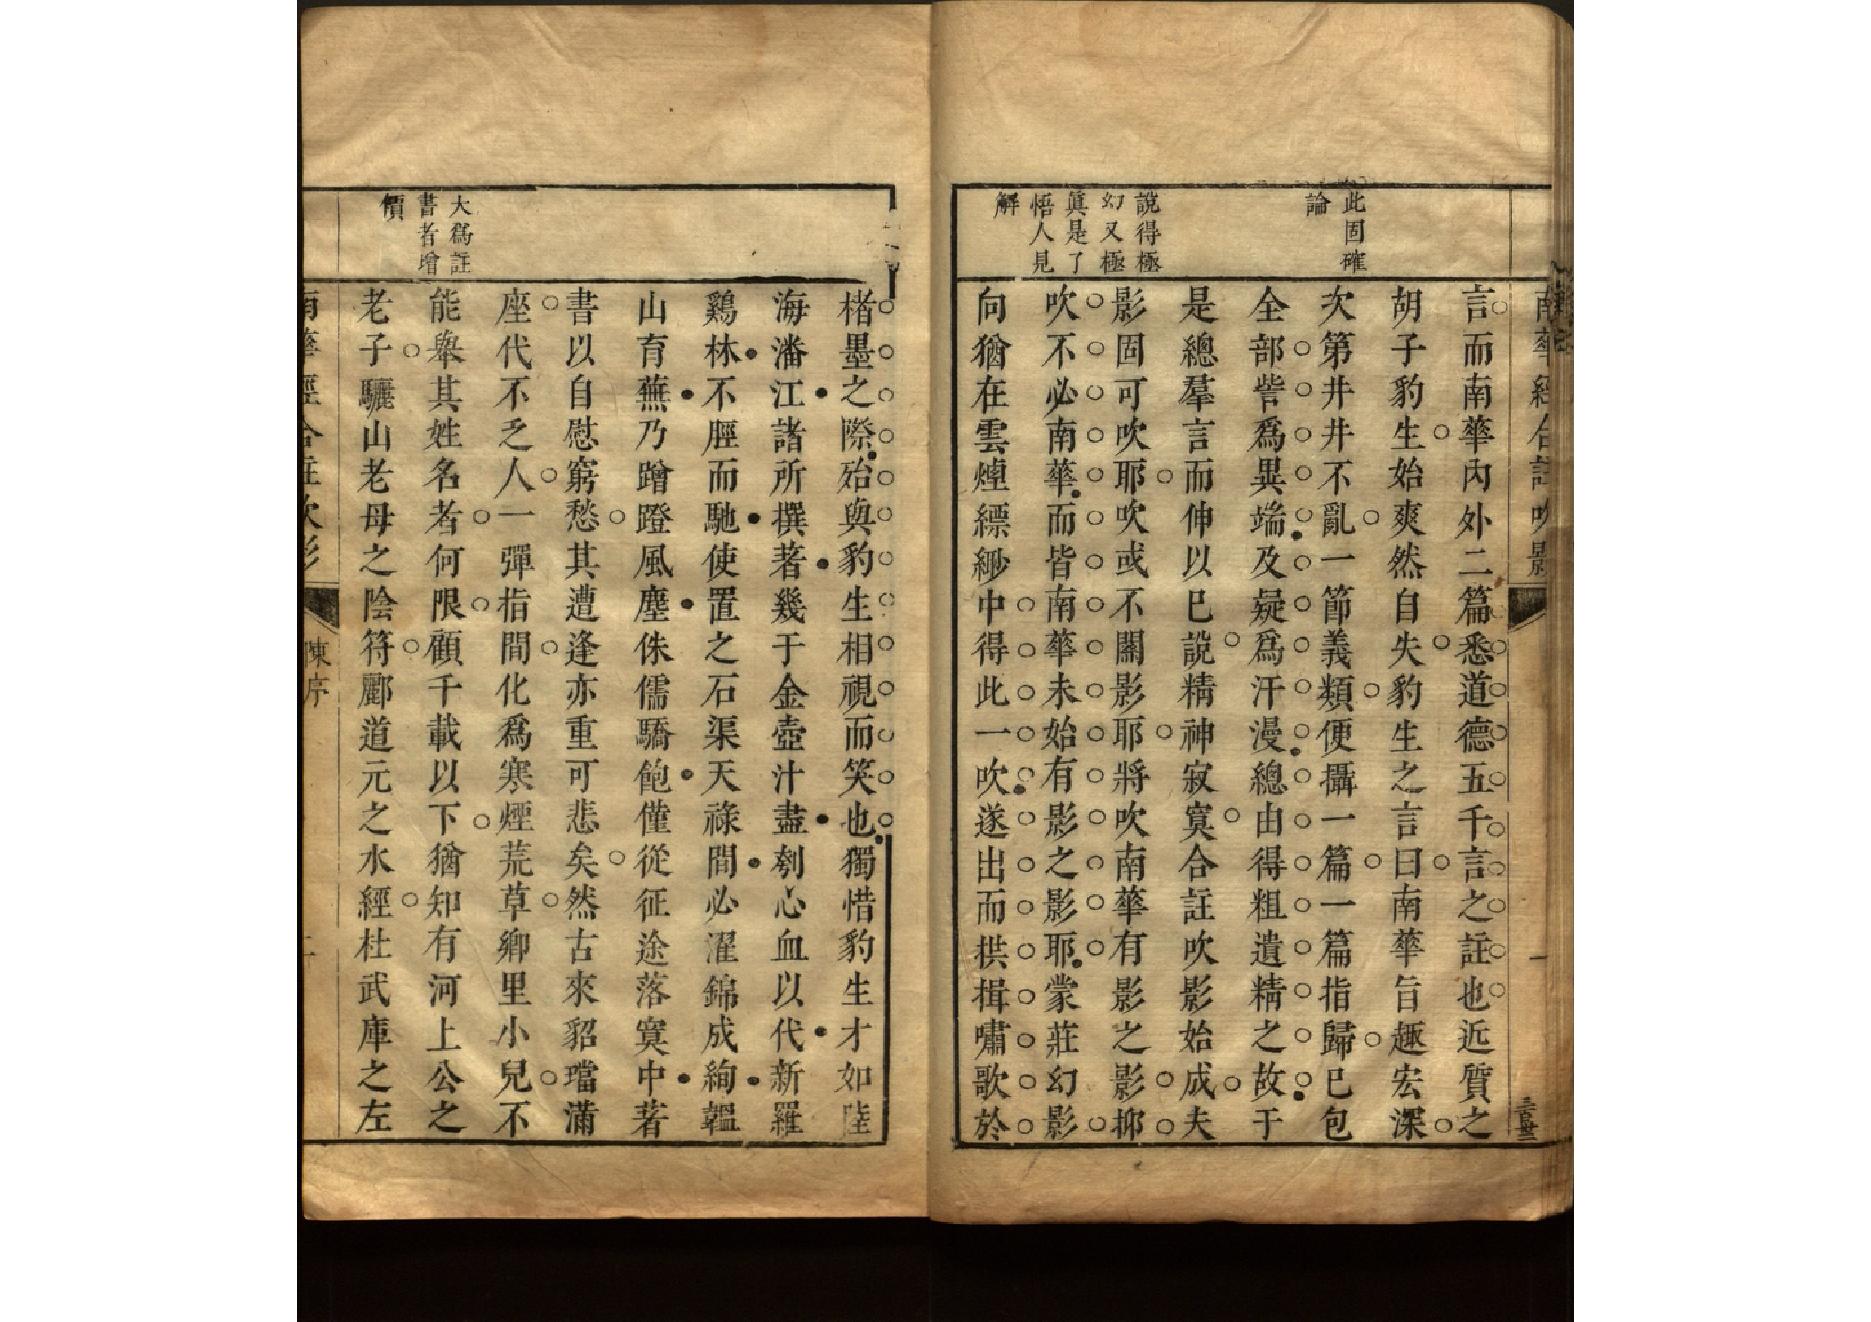 南華經合註吹影
一
言而南華內外二篇悉道德五千言之註也近質之
胡子豹生始爽然自失豹生之言曰南華旨趣宏深
次第井井不亂一節義類便攝一篇一篇指歸已包
全部訾為異端及疑為汗漫總由得粗遺精之故于
是總羣言而伸以已說精神寂寞合註吹影始成夫
影固可吹耶吹或不關影耶將吹南華有影之影抑
吹不必南華而皆南華未始有影之影耶蒙莊幻影
向猶在雲煙縹緲中得此一吹遂出而拱揖嘯歌於
此固確
論
說得極
幻又極
眞是了
悟人見
解
楮墨之際殆與豹生相視而笑也獨惜豹生才如陸
海潘江諸所撰著幾于金壺汁盡刳心血以代新羅
鷄林不脛而馳使置之石渠天祿間必濯錦成絢韞
山育蕪乃蹭蹬風塵侏儒驕飽僅從征途落寞中著
書以自慰窮愁其遭逢亦重可悲矣然古來貂璫滿
座代不乏人一彈指間化為寒煙荒草卿里小兒不
能舉其姓名者何限顧千載以下猶知有河上公之
老子驪山老母之陰符酈道元之水經杜武庫之左
大為註
書者增
價
南華經合註吹影
陳序